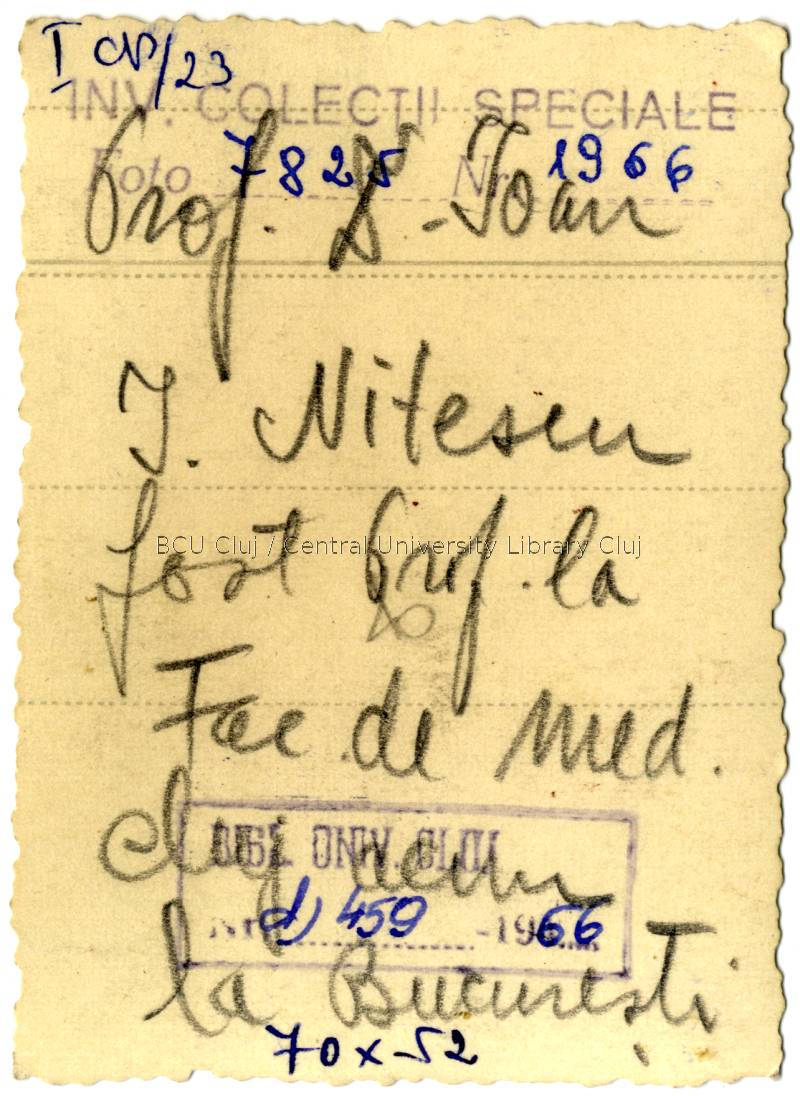 I CP/23
INV. COLECȚII SPECIALE
Foto 7825 Nr. 1966
Prof. Dr. Ioan
I. Nițescu
fost Prof. la
BCU Cluj / Central University Library Cluj
Fac. de med.
Cluj acum
BIBL. UNIV. CLUJ
Nr. d) 459 -1966
la București
70 x 52